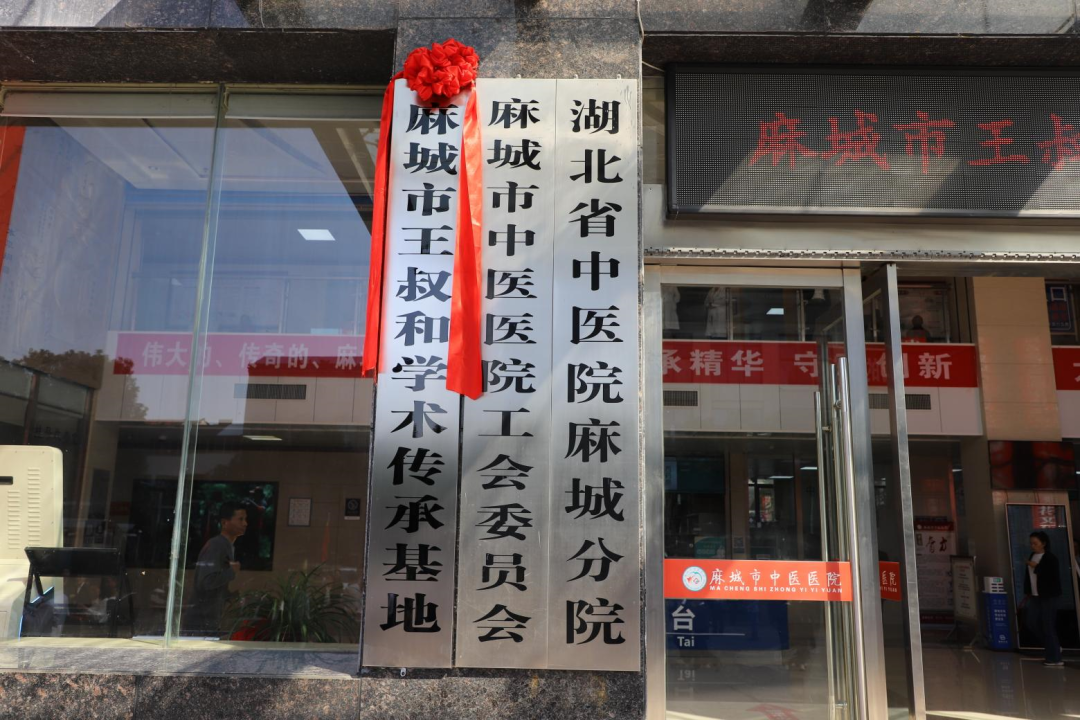 麻城市王叔和学术传承基地
麻城市中医医院工会委员会
湖北省中医院麻城分院
麻城市王叔
伟大的、传奇的、麻
承精华 守正创新
麻城市中医医院
MA CHENG SHI ZHONG YI YI YUAN
医院
台
Tai